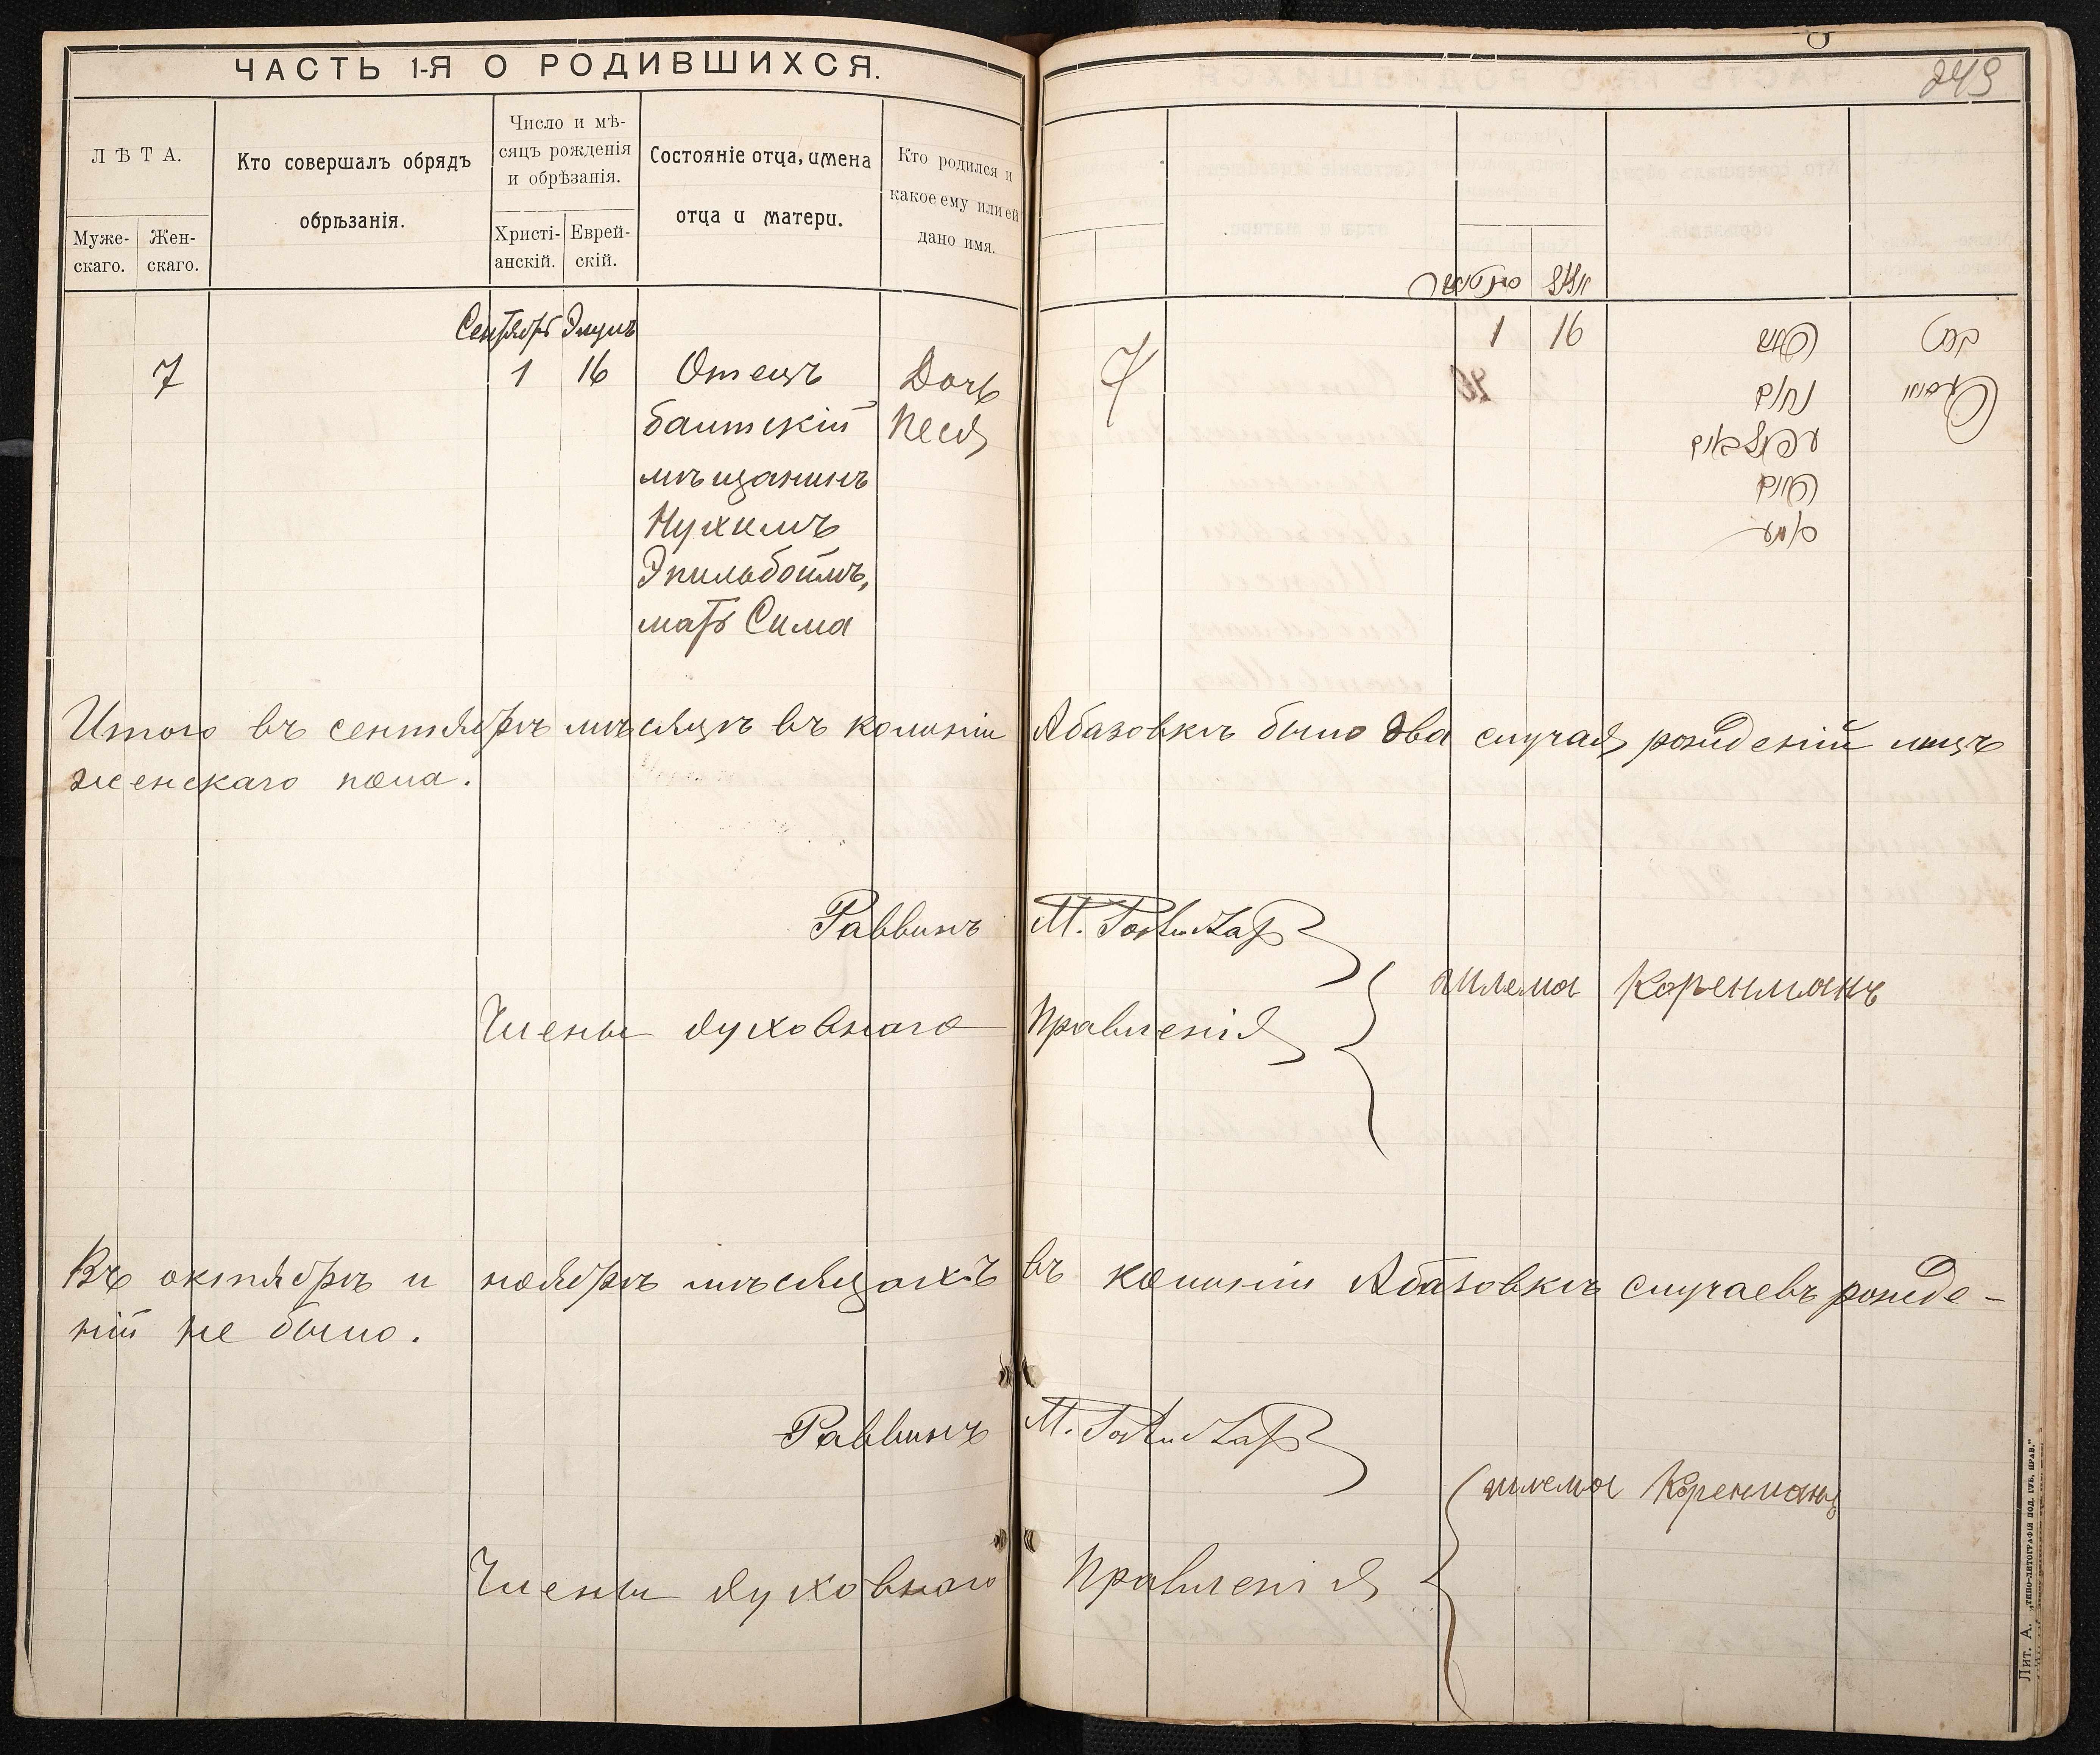 ЧАСТЬ 1-Я О РОДИВШИХСЯ.
249
ЛѢТА.
Муже-
скаго.
Жен-
скаго.
Кто совершалъ обрядъ
обрѣзанія.
Число и мѣ-
сяцъ рожденія
и обрѣзанія.
Христі-
анскій.
Еврей-
скій.
Состояніе отца, имена
отца и матери.
Кто родился и
какое ему или ей
дано имя.
Сентябрь Элулъ
7
1
16
Отецъ
балтскій
мѣщанинъ
Нухимъ
Эпильбоймъ,
мать Сима
Дочь
Песя
7
1
16
Итого въ сентябрѣ мѣсяцѣ въ колоніи Абазовкѣ было два случая рожденій лицъ
женскаго пола.
Раввинъ М.
Члены духовнаго Правленія
Шлема Коренманъ
Въ октябрѣ и ноябрѣ мѣсяцахъ въ колоніи Абазовкѣ случаевъ рожде-
ній не было.
Раввинъ М.
Шлема Коренманъ
Члены духовнаго Правленія
Лит. А. „ТИПО-ЛИТОГРАФІЯ ПОД. ГУБ. ПРАВ."